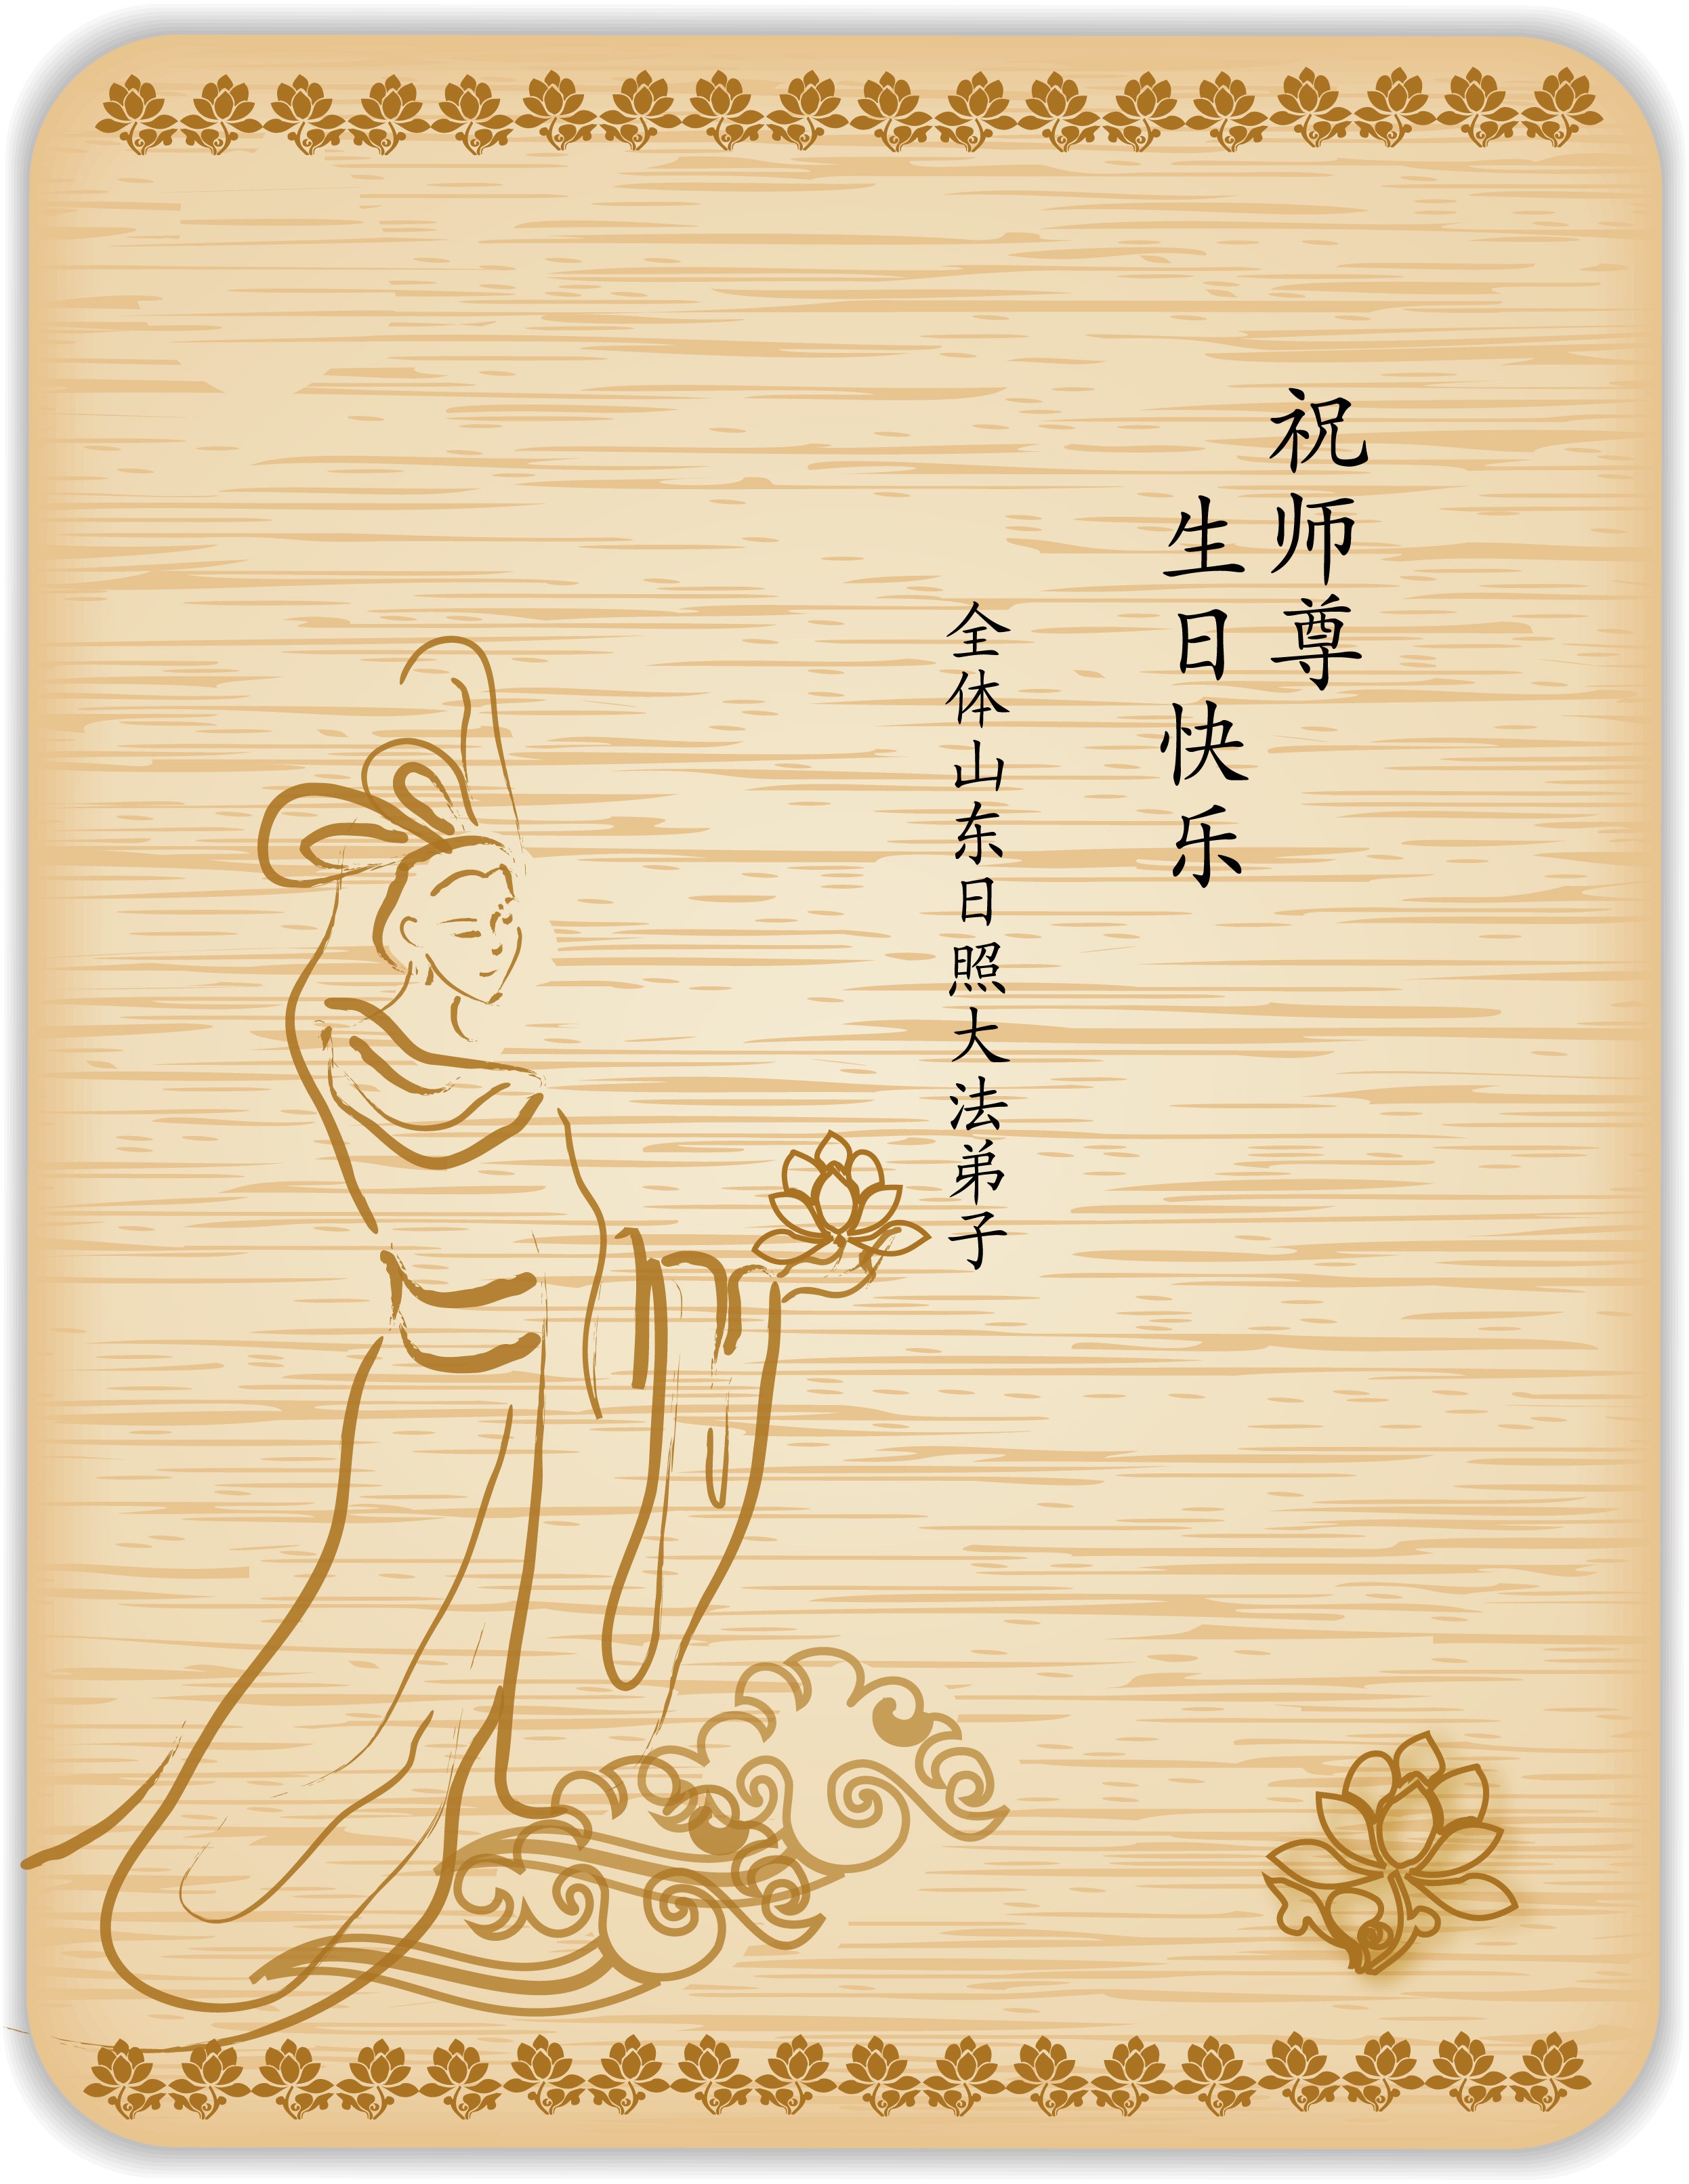 祝师尊
生日快乐
全体山东日照大法弟子